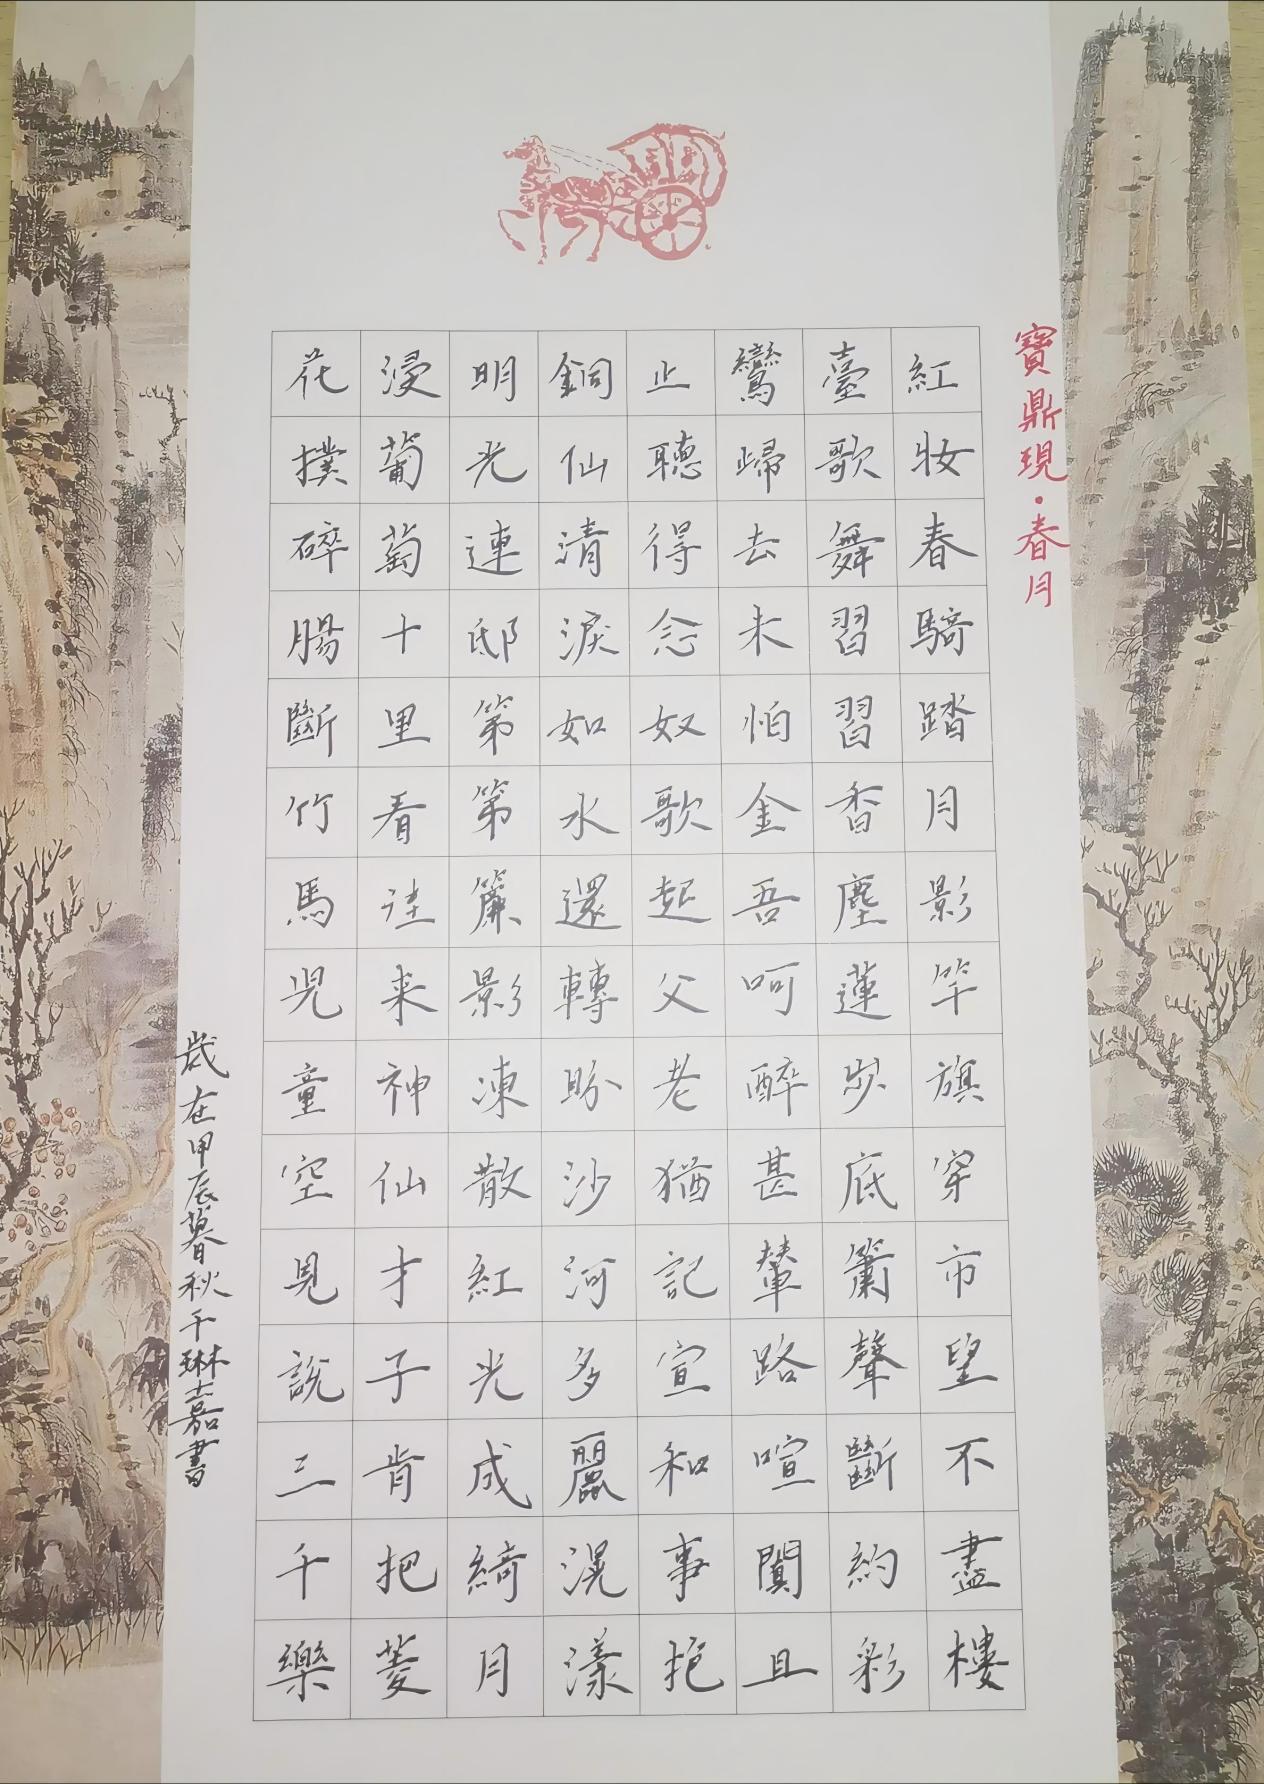 寶鼎現·春月
紅妝春騎踏月影竿旗穿市望不盡樓
臺歌舞習習香塵蓮步底簫聲斷約彩
鸞歸去未怕金吾呵醉甚輦路喧闐且
止聽得念奴歌起父老猶記宣和事抱
銅仙清淚如水還轉盼沙河多麗滉漾
明光連邸第第簾影凍散紅光成綺月
浸葡萄十里看往来神仙才子肯把菱
花撲碎腸斷竹馬児童空見說三千樂
歲在甲辰暮秋于琳嘉書